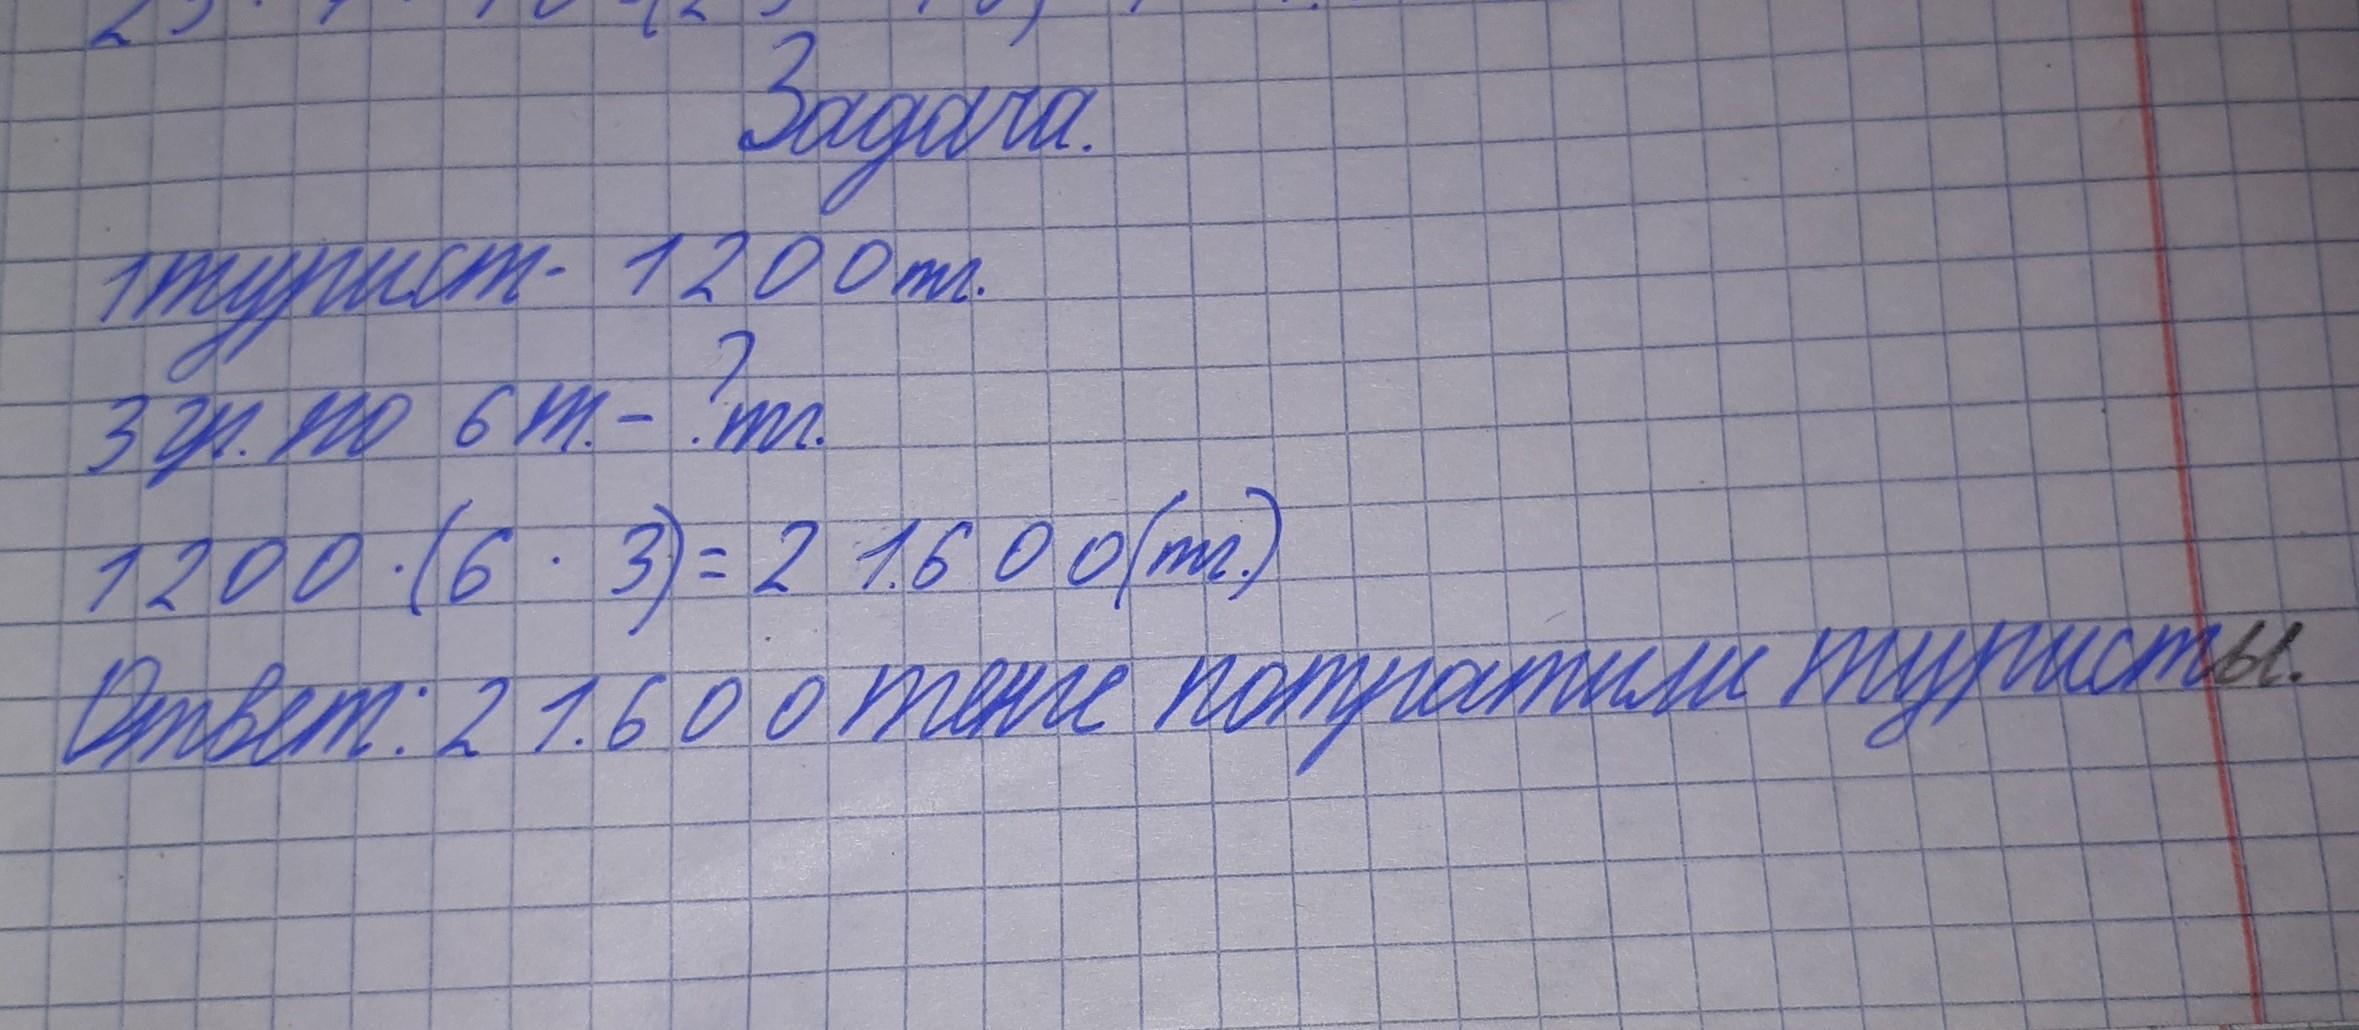 Задача.
1турист- 1200тг.
3 гр. по 6 т. - ? тг.
1200 · (6 · 3) = 21.600 (тг.)
Ответ: 21.600 тенге потратили туристы.